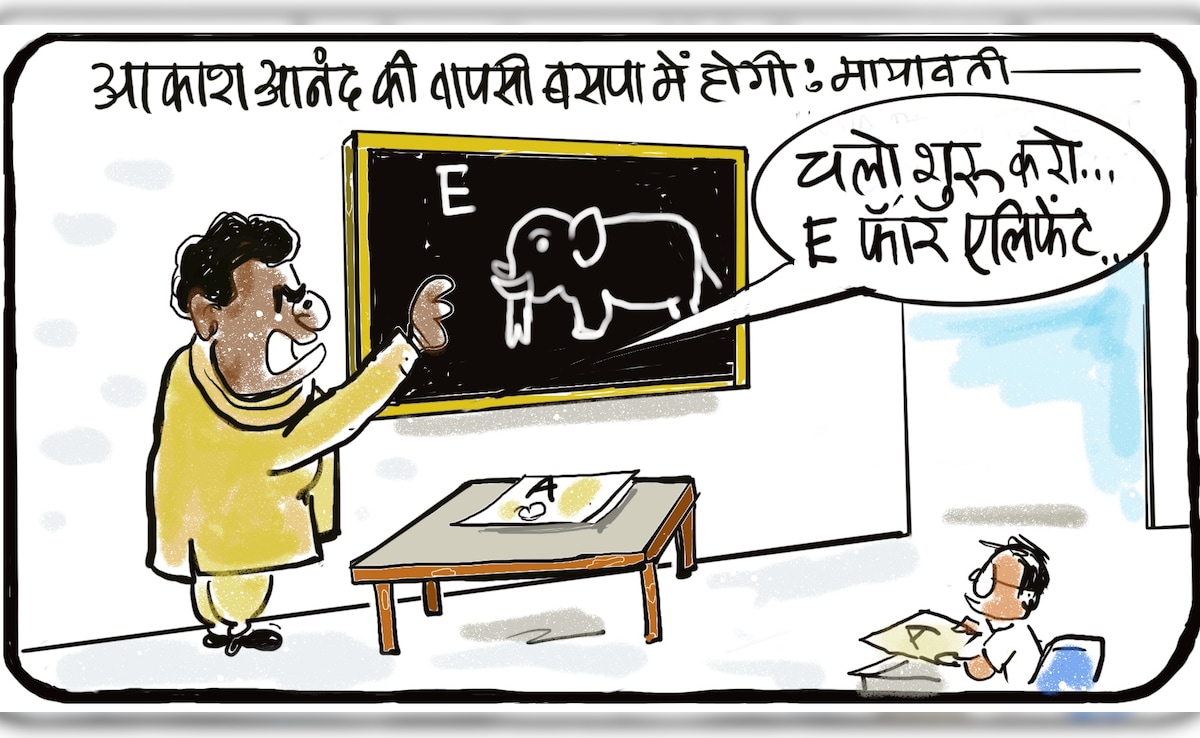 आकाश आनंद की वापसी बसपा में होगी: मायावती
चलो शुरू करो...
E फॉर एलिफेंट...
E
A
A